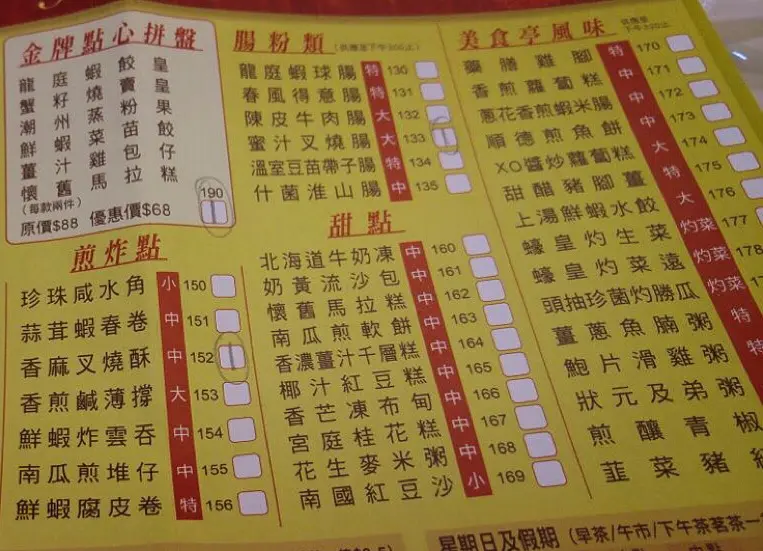 金牌點心拼盤
龍庭蝦餃皇
蟹籽燒賣皇
潮州蒸粉果
鮮蝦菜苗餃
薑汁雞包仔
懷舊馬拉糕
(每款兩件)
190
原價$88 優惠價$68
煎炸點
珍珠咸水角 小 150
蒜茸蝦春卷 中 151
香麻叉燒酥 中 152
香煎鹹薄撐 大 153
鮮蝦炸雲吞 中 154
南瓜煎堆仔 中 155
鮮蝦腐皮卷 特 156
腸粉類
龍庭蝦球腸 特 130
春風得意腸 特 131
陳皮牛肉腸 大 132
蜜汁叉燒腸 大 133
溫室豆苗帶子腸 特 134
什菌淮山腸 中 135
甜點
北海道牛奶凍 中 160
奶黃流沙包 中 161
懷舊馬拉糕 中 162
南瓜煎軟餅 中 163
香濃薑汁千層糕 中 164
椰汁紅豆糕 中 165
香芒凍布甸 中 166
宮庭桂花糕 中 167
花生麥米粥 中 168
南國紅豆沙 小 169
美食亭風味
藥膳雞腳 特 170
香煎蘿蔔糕 中 171
蔥花香煎蝦米腸 中 172
順德煎魚餅 中 173
XO醬炒蘿蔔糕 大 174
甜醋豬腳薑 特 175
上湯鮮蝦水餃 大 176
蠔皇灼生菜 灼菜 177
蠔皇灼菜遠 灼菜 178
頭抽珍菌灼勝瓜 灼菜
薑蔥魚腩粥 特
鮑片滑雞粥 特
狀元及弟粥
煎釀青椒
韮菜豬
星期日及假期 (早茶/午市/下午茶茗茶一